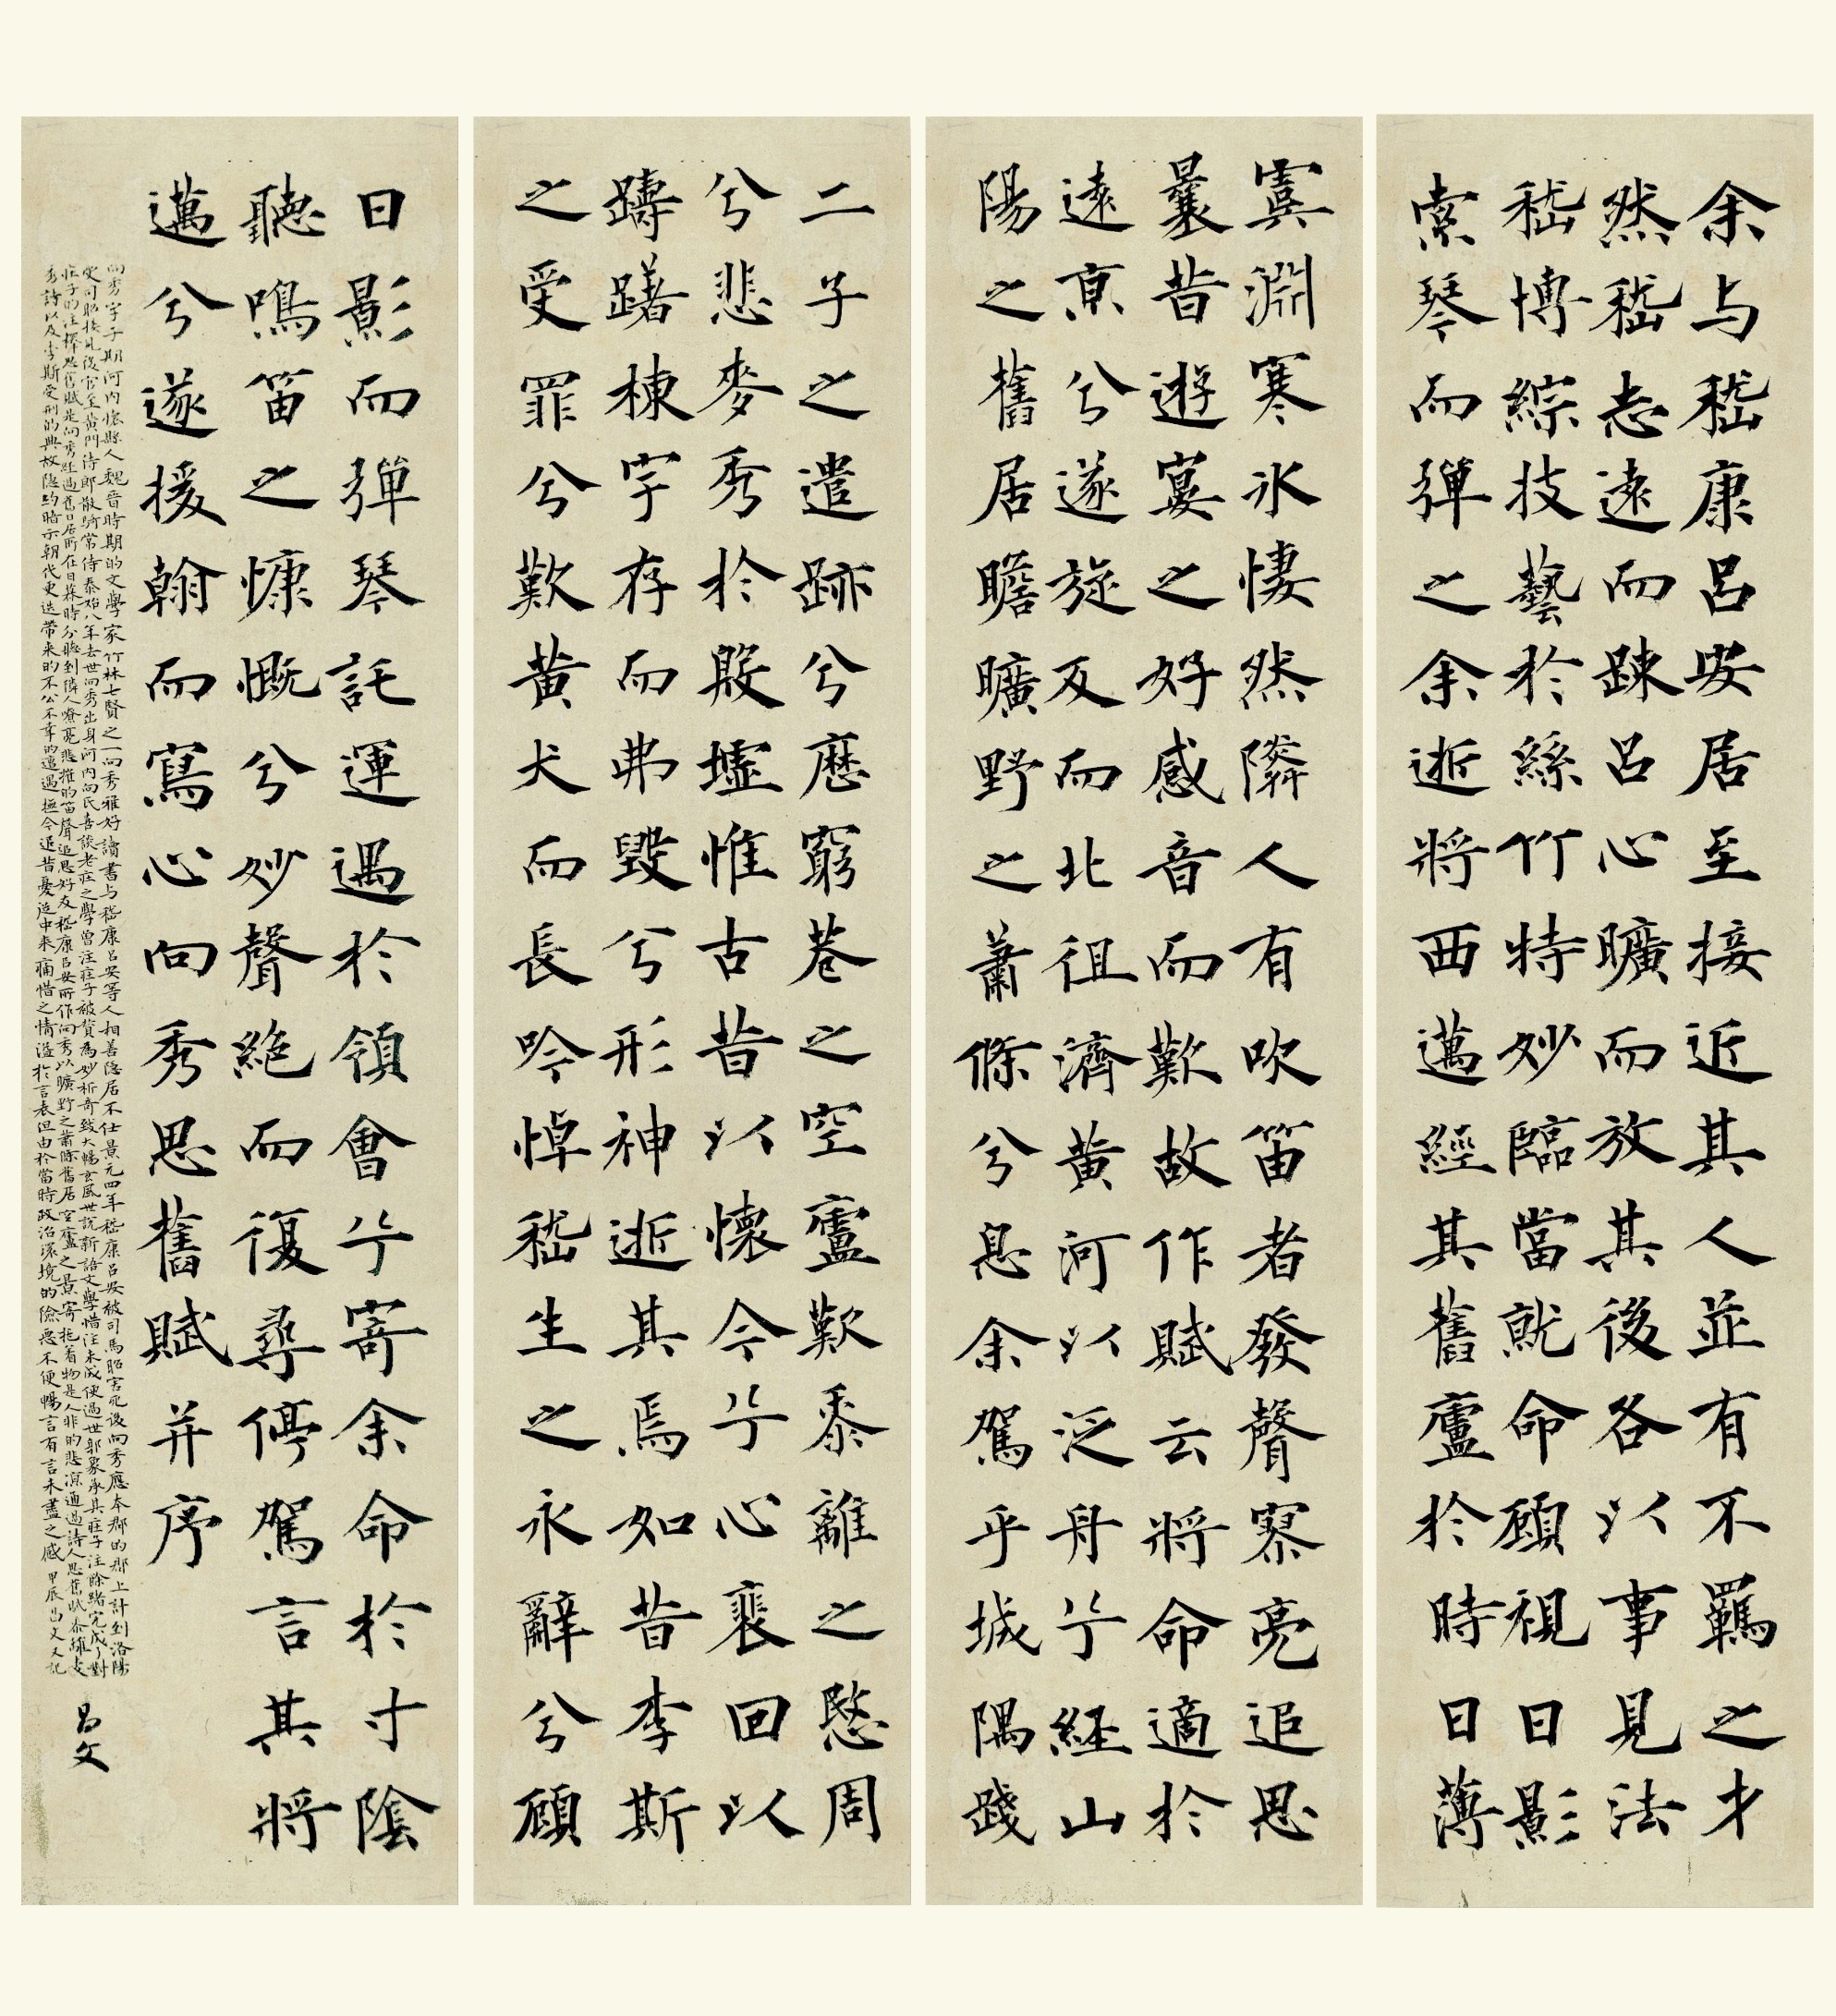 余与嵇康呂安居至接近其人並有不羈之才
然嵇志遠而踈呂心曠而放其後各以事見法
嵇博綜技藝於絲竹特妙臨當就命顧視日影
索琴而彈之余逝將西邁經其舊廬於時日薄
虞淵寒冰悽然隣人有吹笛者發聲寥亮追思
曩昔遊宴之好感音而歎故作賦云將命適於
遠京兮遂旋反而北徂濟黃河以泛舟兮經山
陽之舊居瞻曠野之蕭條兮息余駕乎城隅踐
二子之遺跡兮歷窮巷之空廬歎黍離之愍周
兮悲麥秀於殷墟惟古昔以懷今兮心裵回以
躊躇棟宇存而弗毀兮形神逝其焉如昔李斯
之受罪兮歎黃犬而長吟悼嵇生之永辭兮顧
日影而彈琴託運遇於領會兮寄余命於寸陰
聽鳴笛之慷慨兮妙聲絕而復尋停駕言其將
邁兮遂援翰而寫心向秀思舊賦并序
向秀字子期河內懷縣人魏晉時期的文學家竹林七賢之一向秀雅好讀書与嵇康呂安等人相善隱居不仕景元四年嵇康呂安被司馬昭害死後向秀應本郡的郡上計到洛陽
受司昭接見後官至黃門侍郎散騎常侍泰始八年去世向秀出身河內向氏喜談老莊之學曾注莊子被贊為妙析奇致大暢玄風世說新語文學惜注未成便過世郭象承其莊子注餘緒完成了對
莊子的注釋思舊賦是向秀經過舊日居所在日暮時分聽到隣人嘹亮悲摧的笛聲追思好友嵇康呂安所作向秀以曠野之蕭條舊居空廬之景寄托着物是人非的悲涼通過詩人思舊賦黍離麥
秀詩以及李斯受刑的典故隱約暗示朝代更迭帶来的不公不幸的遭遇撫今追昔憂從中来痛惜之情溢於言表但由於當時政治環境的險惡不便暢言有言未盡之感 甲辰昌文又記
昌文